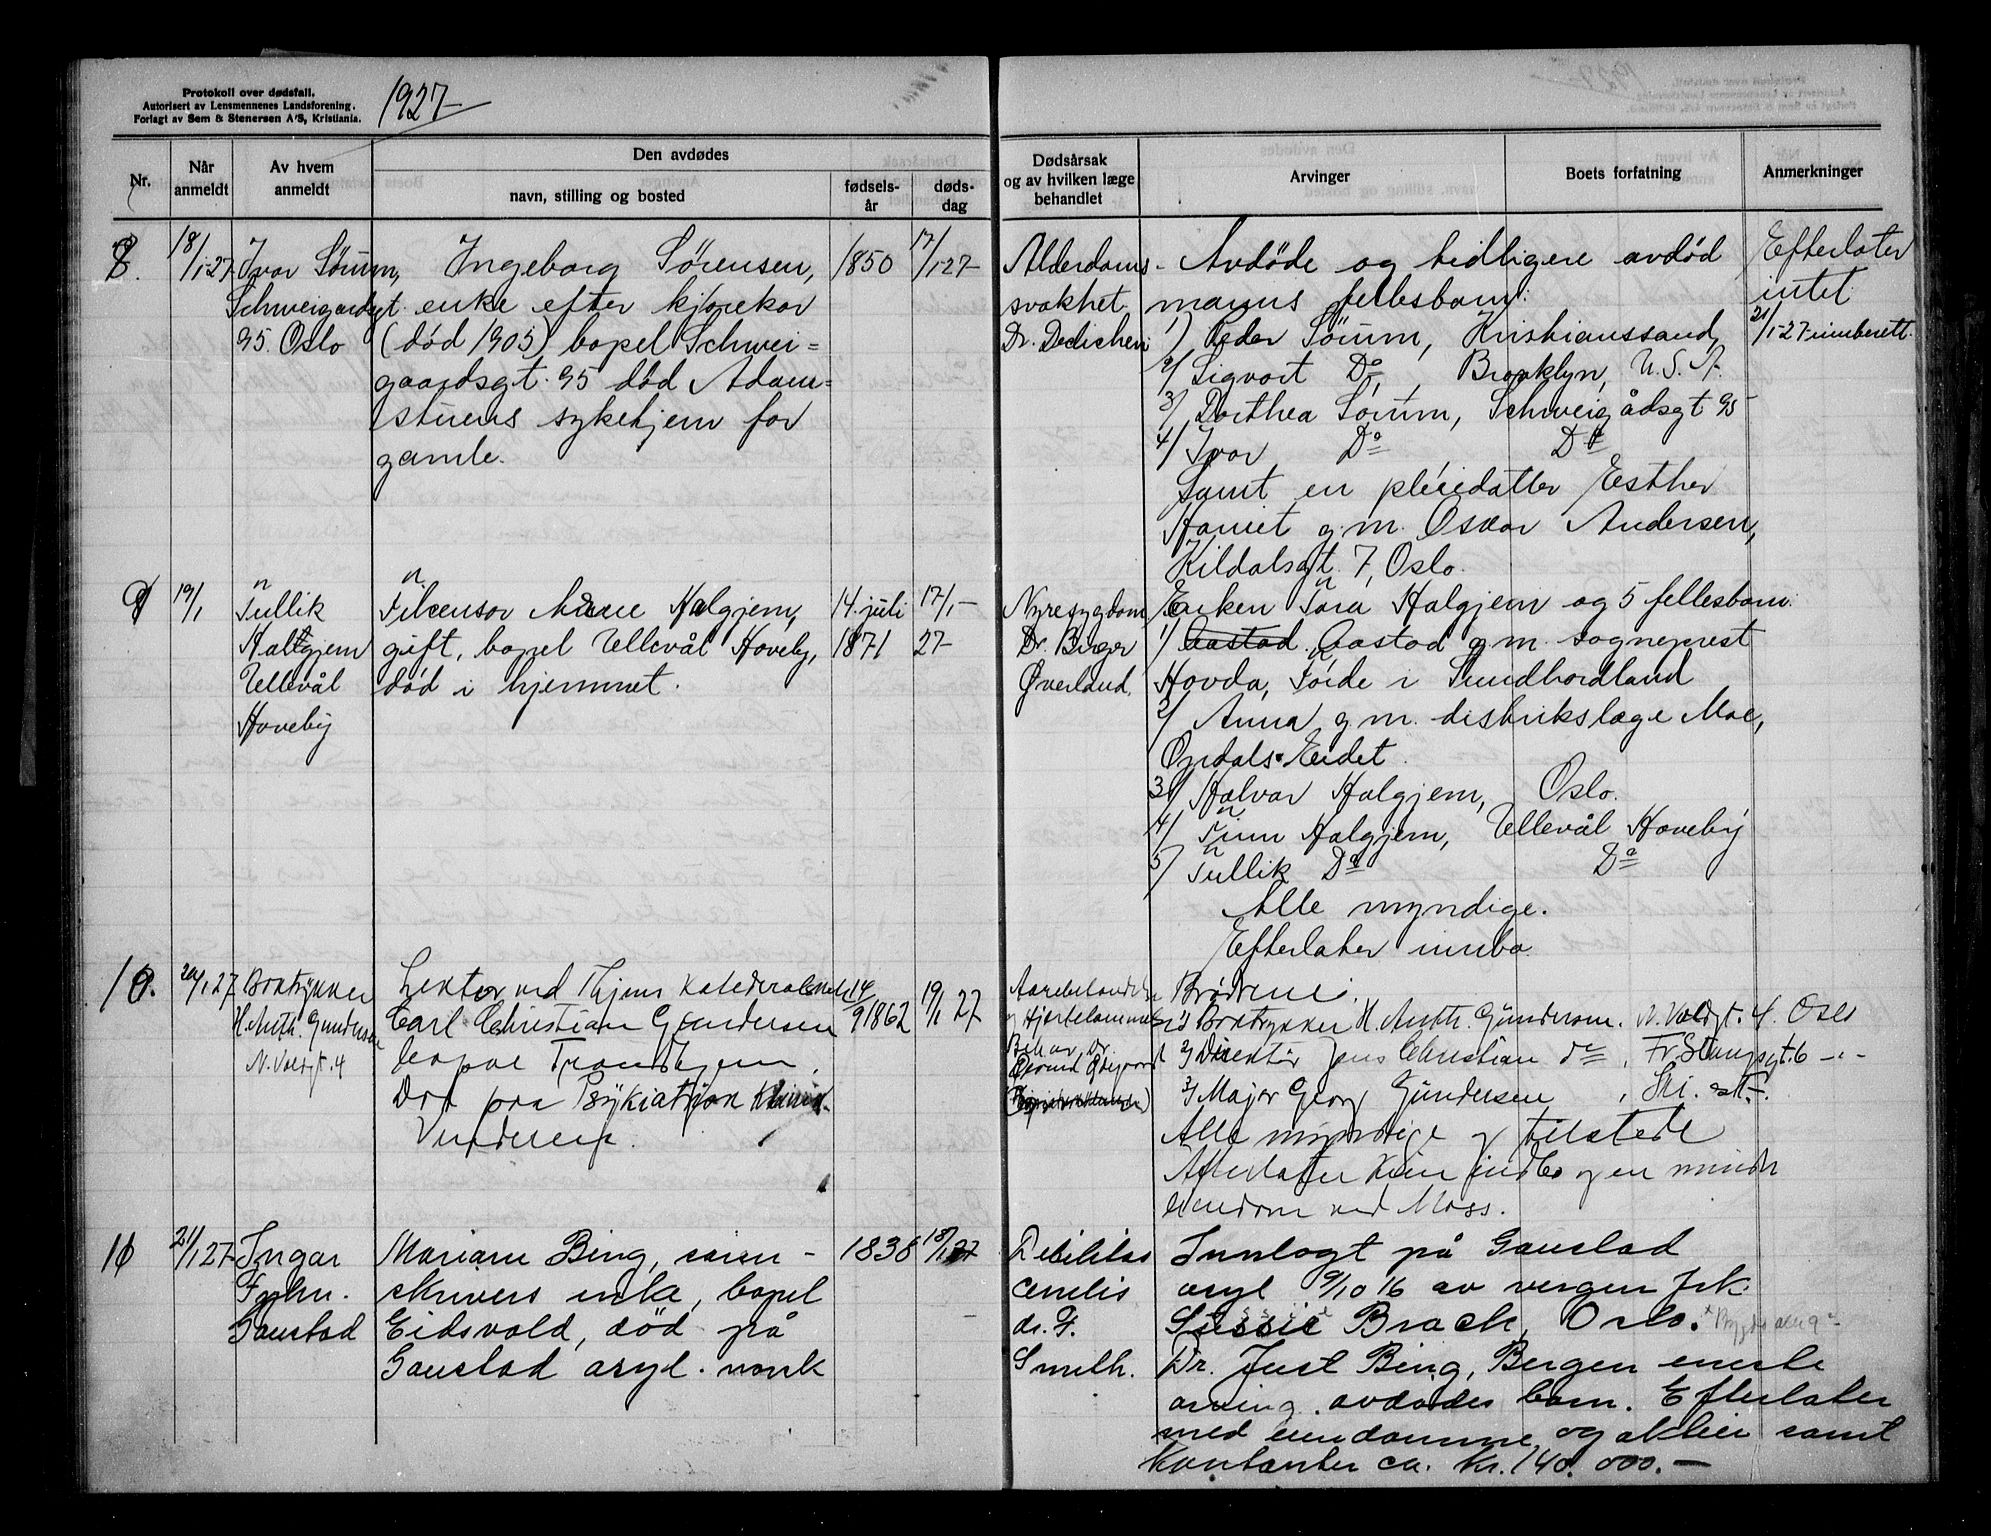 Protokoll over dødsfall.
Autorisert av Lensmennenes Landsforening.
Forlagt av Sem & Stenersen A/S, Kristiania.
1927-
Nr.
Når anmeldt
Av hvem anmeldt
Den avdødes
navn, stilling og bosted
fødsels-år
døds-dag
Dødsårsak og av hvilken læge behandlet
Arvinger
Boets forfatning
Anmerkninger
8.
18/1-27
Ivar Sørum,
Schweigardsgt.
95. Oslo
Ingeborg Sørensen,
enke efter kjørekar
(død 1905) bopel Schwei=
gaardsgt. 95 død Adam=
stuens sykehjem for
gamle.
1850
17/1-27-
Alderdoms-
svakhet
Dr. Dedichen
Avdøde og tidligere avdød
manns fellesbarn:
1) Peder Sørum, Kristianssand
2/ Sigvart Do, Brooklyn, U.S.A.
3/ Dorthea Sørum, Schweigådsgt 95-
4/ Ivar Do Do
Samt en pleiedatter Esther
Harriet g.m. Oscar Andersen,
Kildalsgt. 7, Oslo.
Efterlater
intet
21/1-27 innberett.
9
19/1
Tullik
Halgjem
Ullevål
Haveby
Filcensor Arne Halgjem,
gift, bopel Ullevål Haveby,
død i hjemmet.
14. juli
1871
17/1-
27-
Nyresygdom
Dr. Birger
Øverland.
Enken Tora Halgjem og 5 fellesbarn:
1/ Aastad. Aastad g.m. sogneprest
Hovda, i Sundhordland
2/ Anna g.m. distrikslæge Moe,
Eidet.
3/ Halvar Halgjem, Oslo.
4/ Finn Halgjem, Ullevål Haveby
5/ Tullik Do Do
Alle myndige.
Efterlater innbo
10.
20/1 27
Boktrykker
H. Anth. Gundersen
N. Voldgt. 4
Lektor ved Thjems Katedralskole
Carl Christian Gundersen
bopæl Trondhjem.
Død paa Psykiatrisk Klinik.
Vinderen.
14/9 1862
19/1 27
og Hjertelammelse
Dr.
Brødrene:
1/ Boktrykker H. Anth. Gundersen. N. Voldgt. 4. Oslo
2/ Direktør Jens Christian do, Fr Stangsgt. 6 -"-
3/ Major Georg Gundersen, Ski. st.
Alle myndige og tilstede
Afterlater kun indbo og en mindre
eiendom ved Moss.
11
21/1 27-
Ingar
Fyhn.
Gaustad
Mariane Bing, soren-
skrivers enke, bopel
Eidsvold, død på
Gaustad asyl. norsk
1838
18/1 27
Debilitas
cenelis
dr. F.
Smith.
Innlagt på Gaustad
asyl 9/10 16 av vergen frk.
Sussie Brock, Oslo.
Dr. Just Bing, Bergen eneste
arving. avdødes barn. Efterlater
med eiendomme, og aktier samt
Kontanter ca. Kr. 140.000.-